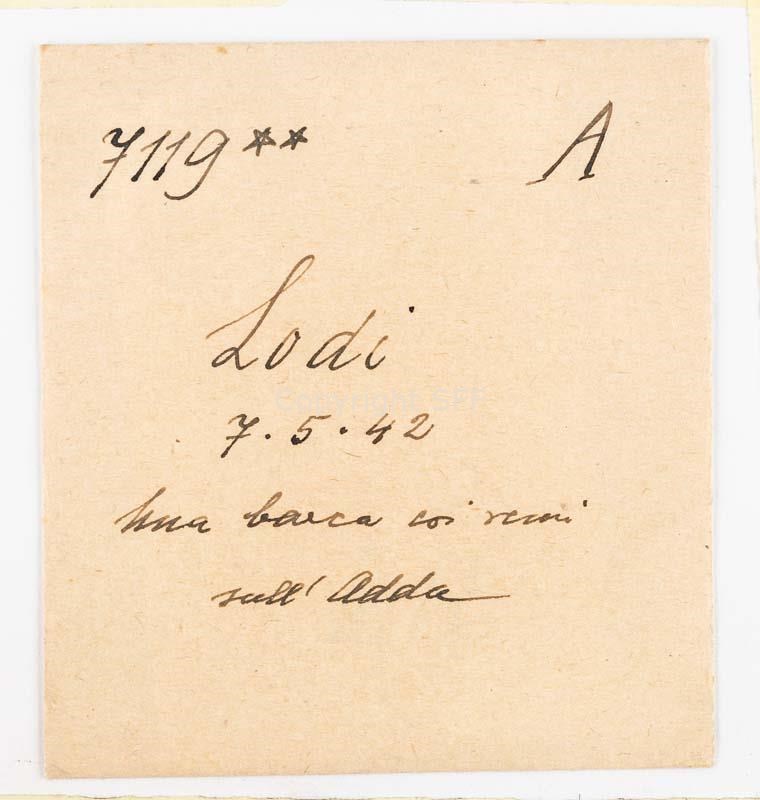 7119** A
Lodi
Copyright SFF
7.5.42
Una barca coi remi
sull' Adda